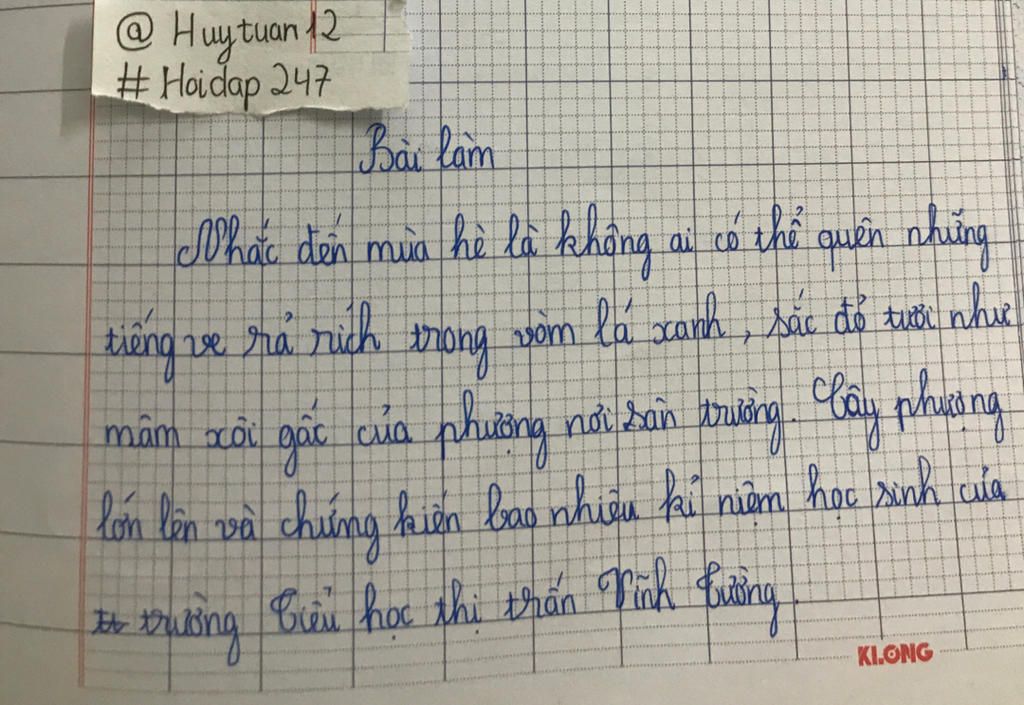 @ Huytuan12
# Hoidap 247
Bài làm
Nhắc đến mùa hè là không ai có thể quên những
tiếng ve rả rích trong vòm lá xanh, sắc đỏ tươi như
mâm xôi gấc của phượng nơi sân trường. Cây phượng
lớn lên và chứng kiến bao nhiêu kỉ niệm học sinh của
trường Tiểu học thị trấn Vĩnh Tường.
KLONG